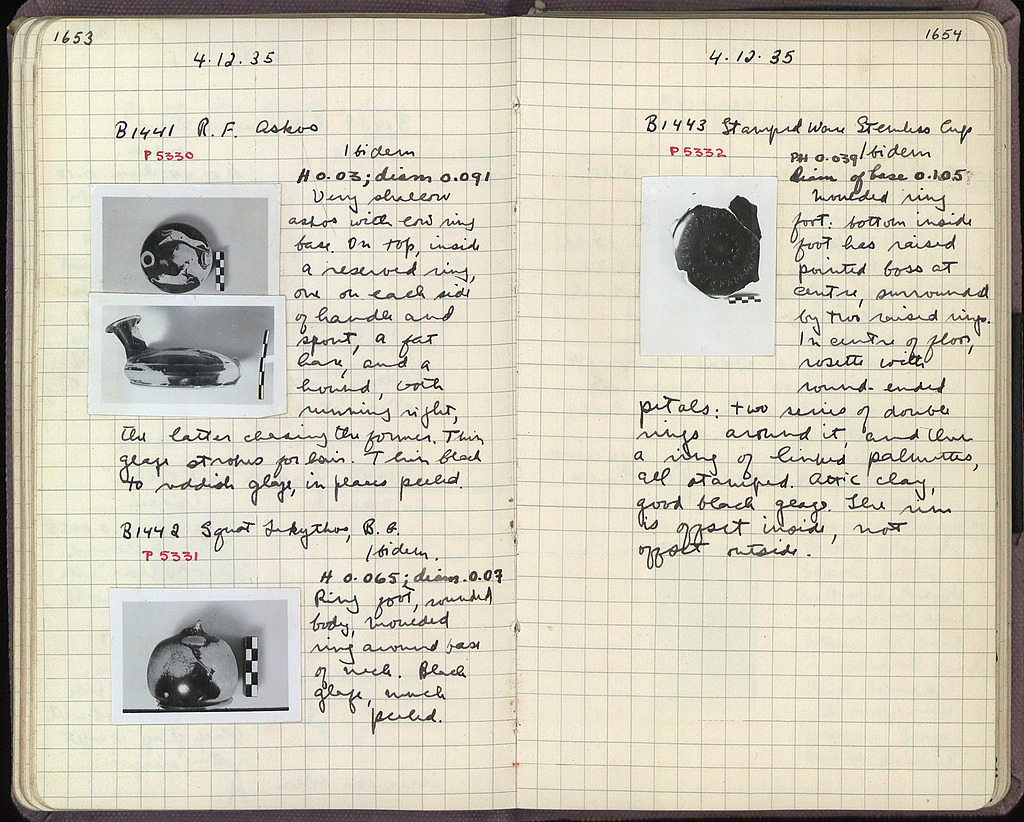 1653
4·12·35
B1441 R.F. Askos
P 5330
Ibidem
H 0.03; diam 0.091
Very shallow
askos with low ring
base. On top, inside
a reserved ring,
one on each side
of handle and
spout, a fat
hare, and a
hound, both
running right,
the latter chasing the former. Thin
glaze strokes for hair. Thin black
to reddish glaze, in places peeled.
B1442 Squat Lekythos, B.G.
P 5331
Ibidem.
H 0.065; diam. 0.07
Ring foot, rounded
body, moulded
ring around base
of neck. Black
glaze, much
peeled.
1654
4·12·35
B1443 Stamped Ware Stemless Cup
P 5332
PH 0.039 Ibidem
Diam of base 0.105
Moulded ring
foot: bottom inside
foot has raised
pointed boss at
centre, surrounded
by two raised rings.
In centre of floor,
rosette with
round-ended
petals: two series of double
rings around it, and then
a ring of linked palmettes,
all stamped. Attic clay,
good black glaze. The rim
is offset inside, not
offset outside.